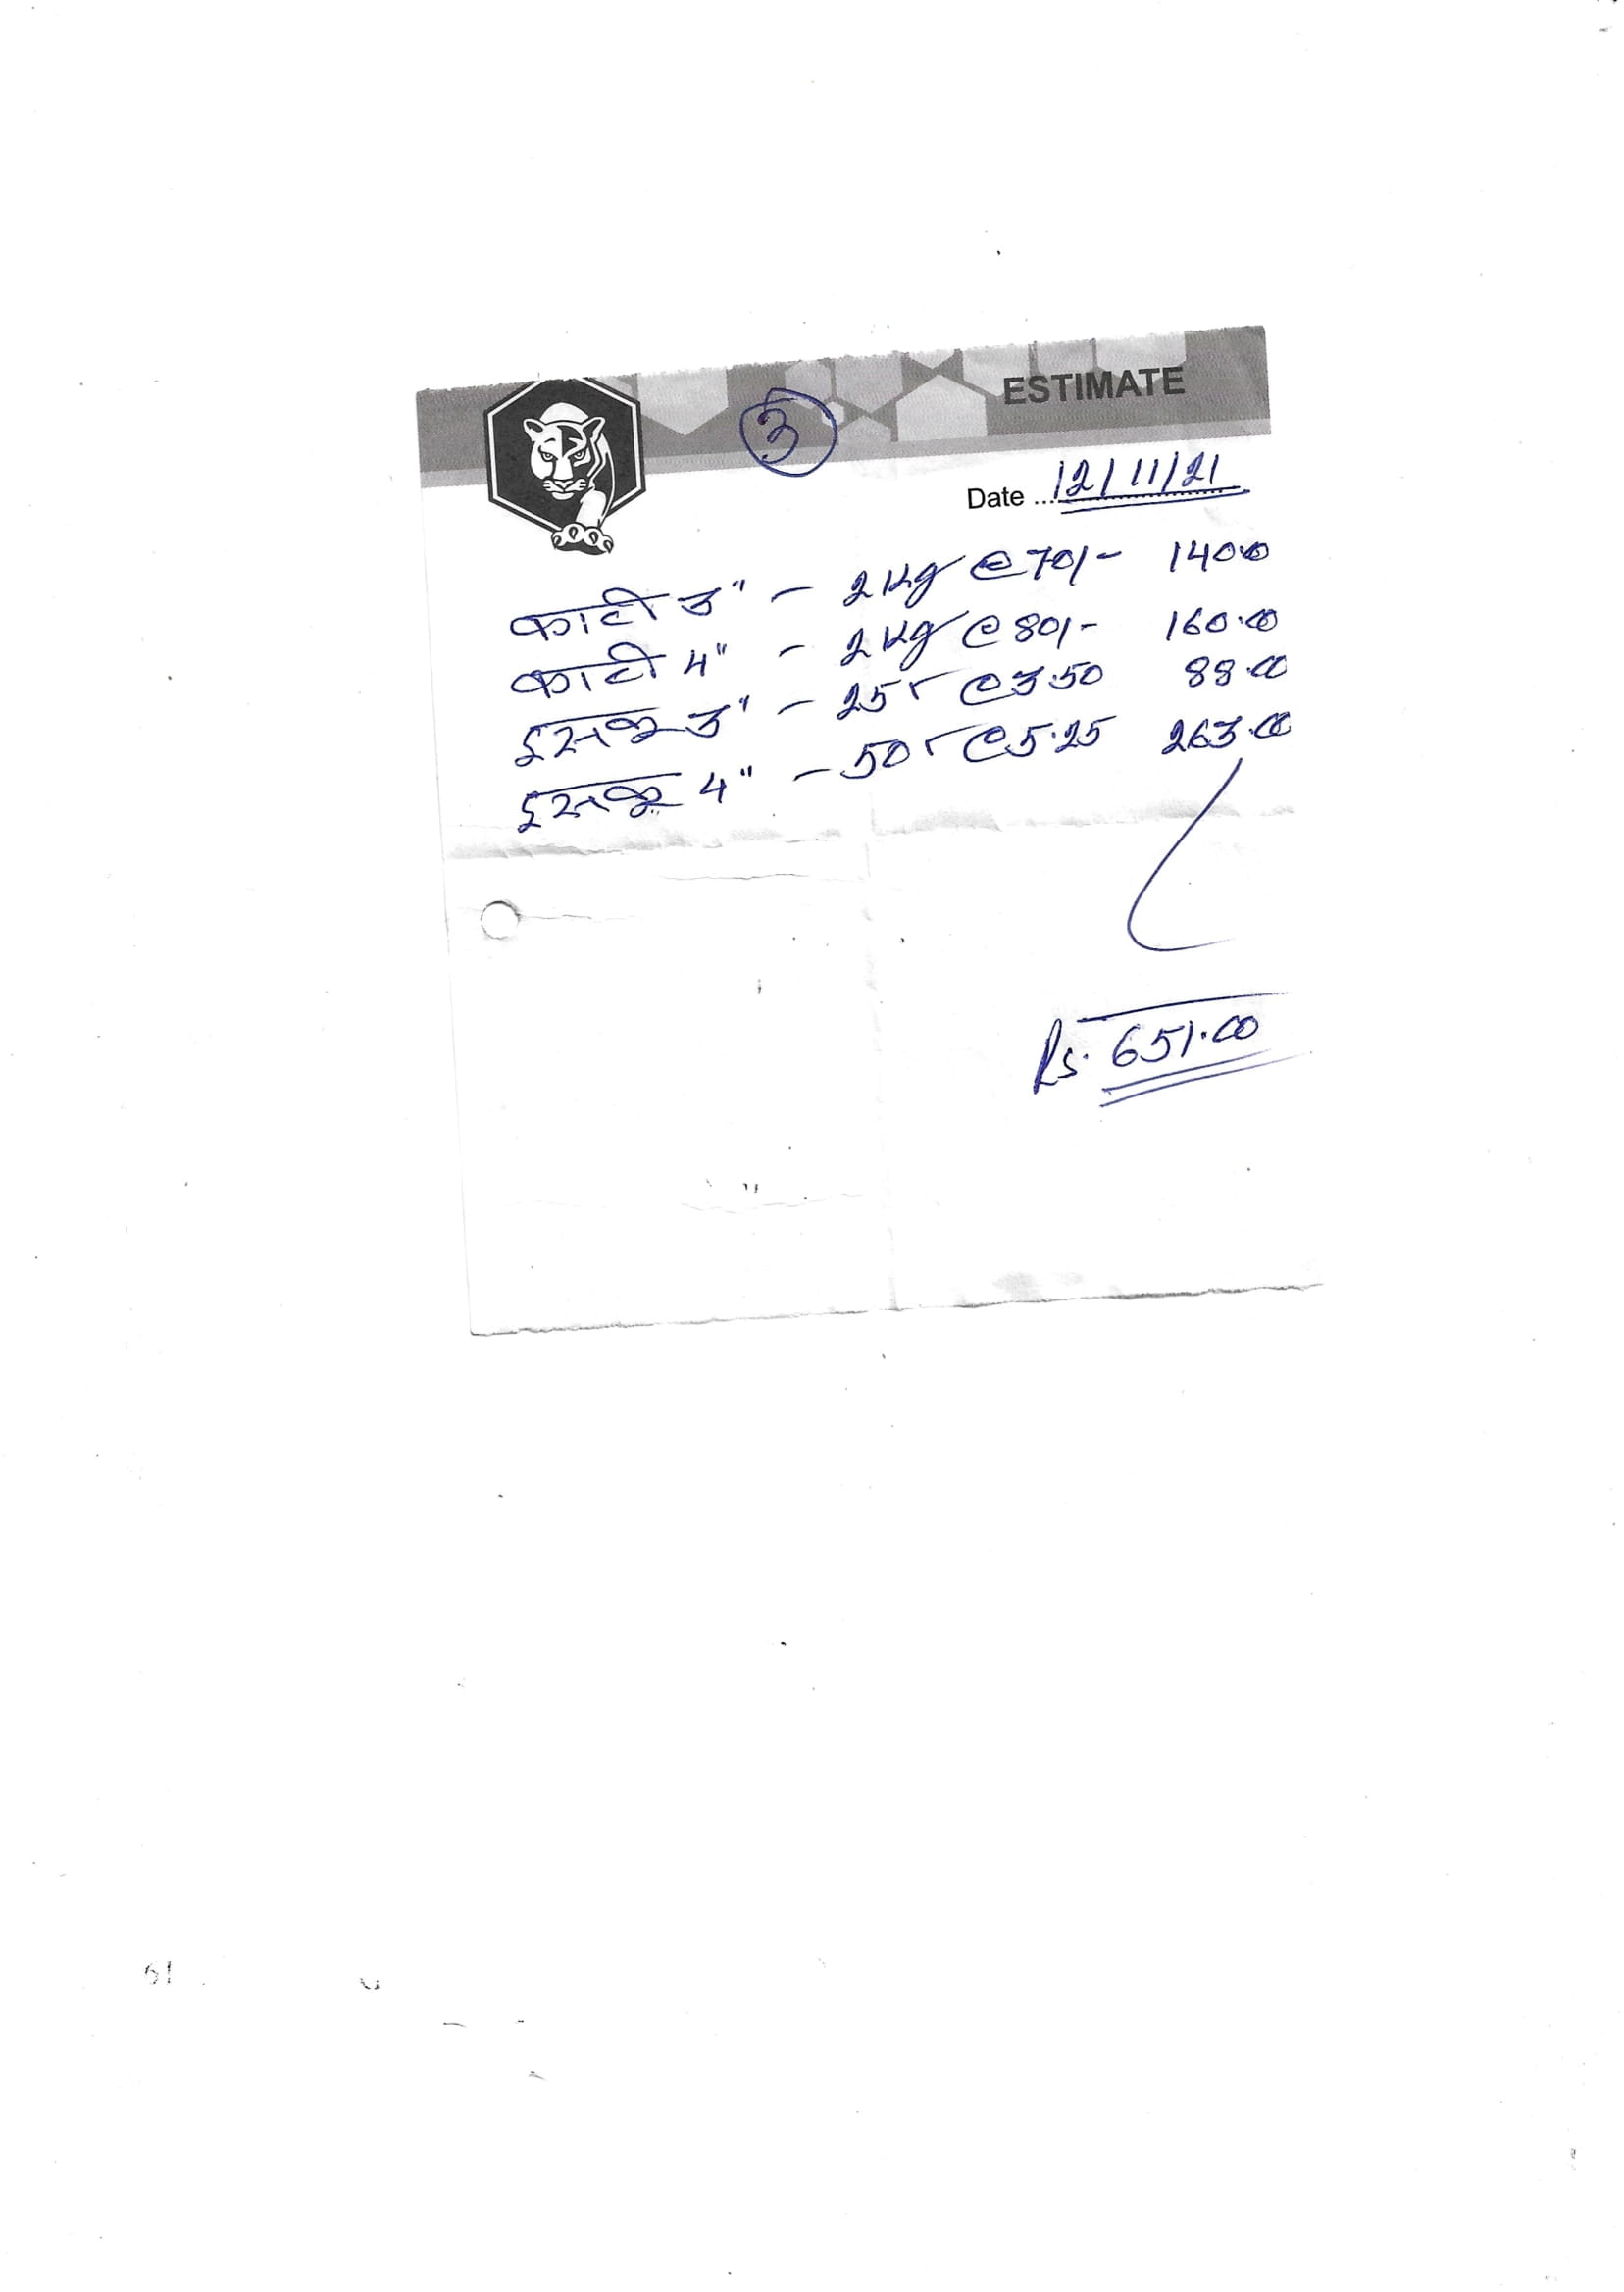 ESTIMATE
3
Date ... 12/11/21
काटी 3" - 2 Kg @ 70/- 140.00
काटी 4" - 2 Kg @ 80/- 160.00
3" - 25 @ 3.50 88.00
4" - 50 @ 5.25 263.00
Rs. 651.00